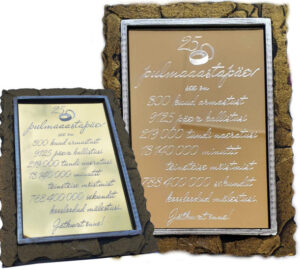 25
pulmaaastapäev
see on
300 kuud armastust
9125 päeva kallistusi
219 000 tundi naeratusi
13 140 000 minutit
teineteise mõistmist
788 400 000 sekundit
mälestusi.
Jätkuvat õnne!
25
pulmaaastapäev
see on
300 kuud armastust
9125 päeva kallistusi
219 000 tundi naeratusi
13 140 000 minutit
teineteise mõistmist
788 400 000 sekundit
mälestusi.
Jätkuvat õnne!